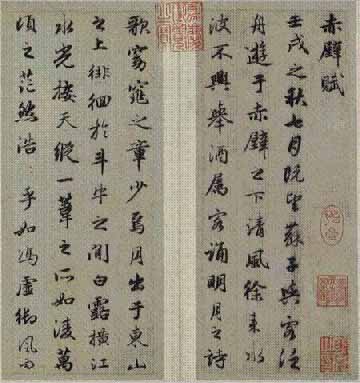 赤壁賦
壬戌之秋七月既望蘇子與客泛
舟遊于赤壁之下清風徐来水
波不興舉酒属客誦明月之詩
歌窈窕之章少焉月出于東山
之上徘徊於斗牛之間白露橫江
水光接天縱一葦之所如凌萬
頃之茫然浩 乎如馮虛御風而